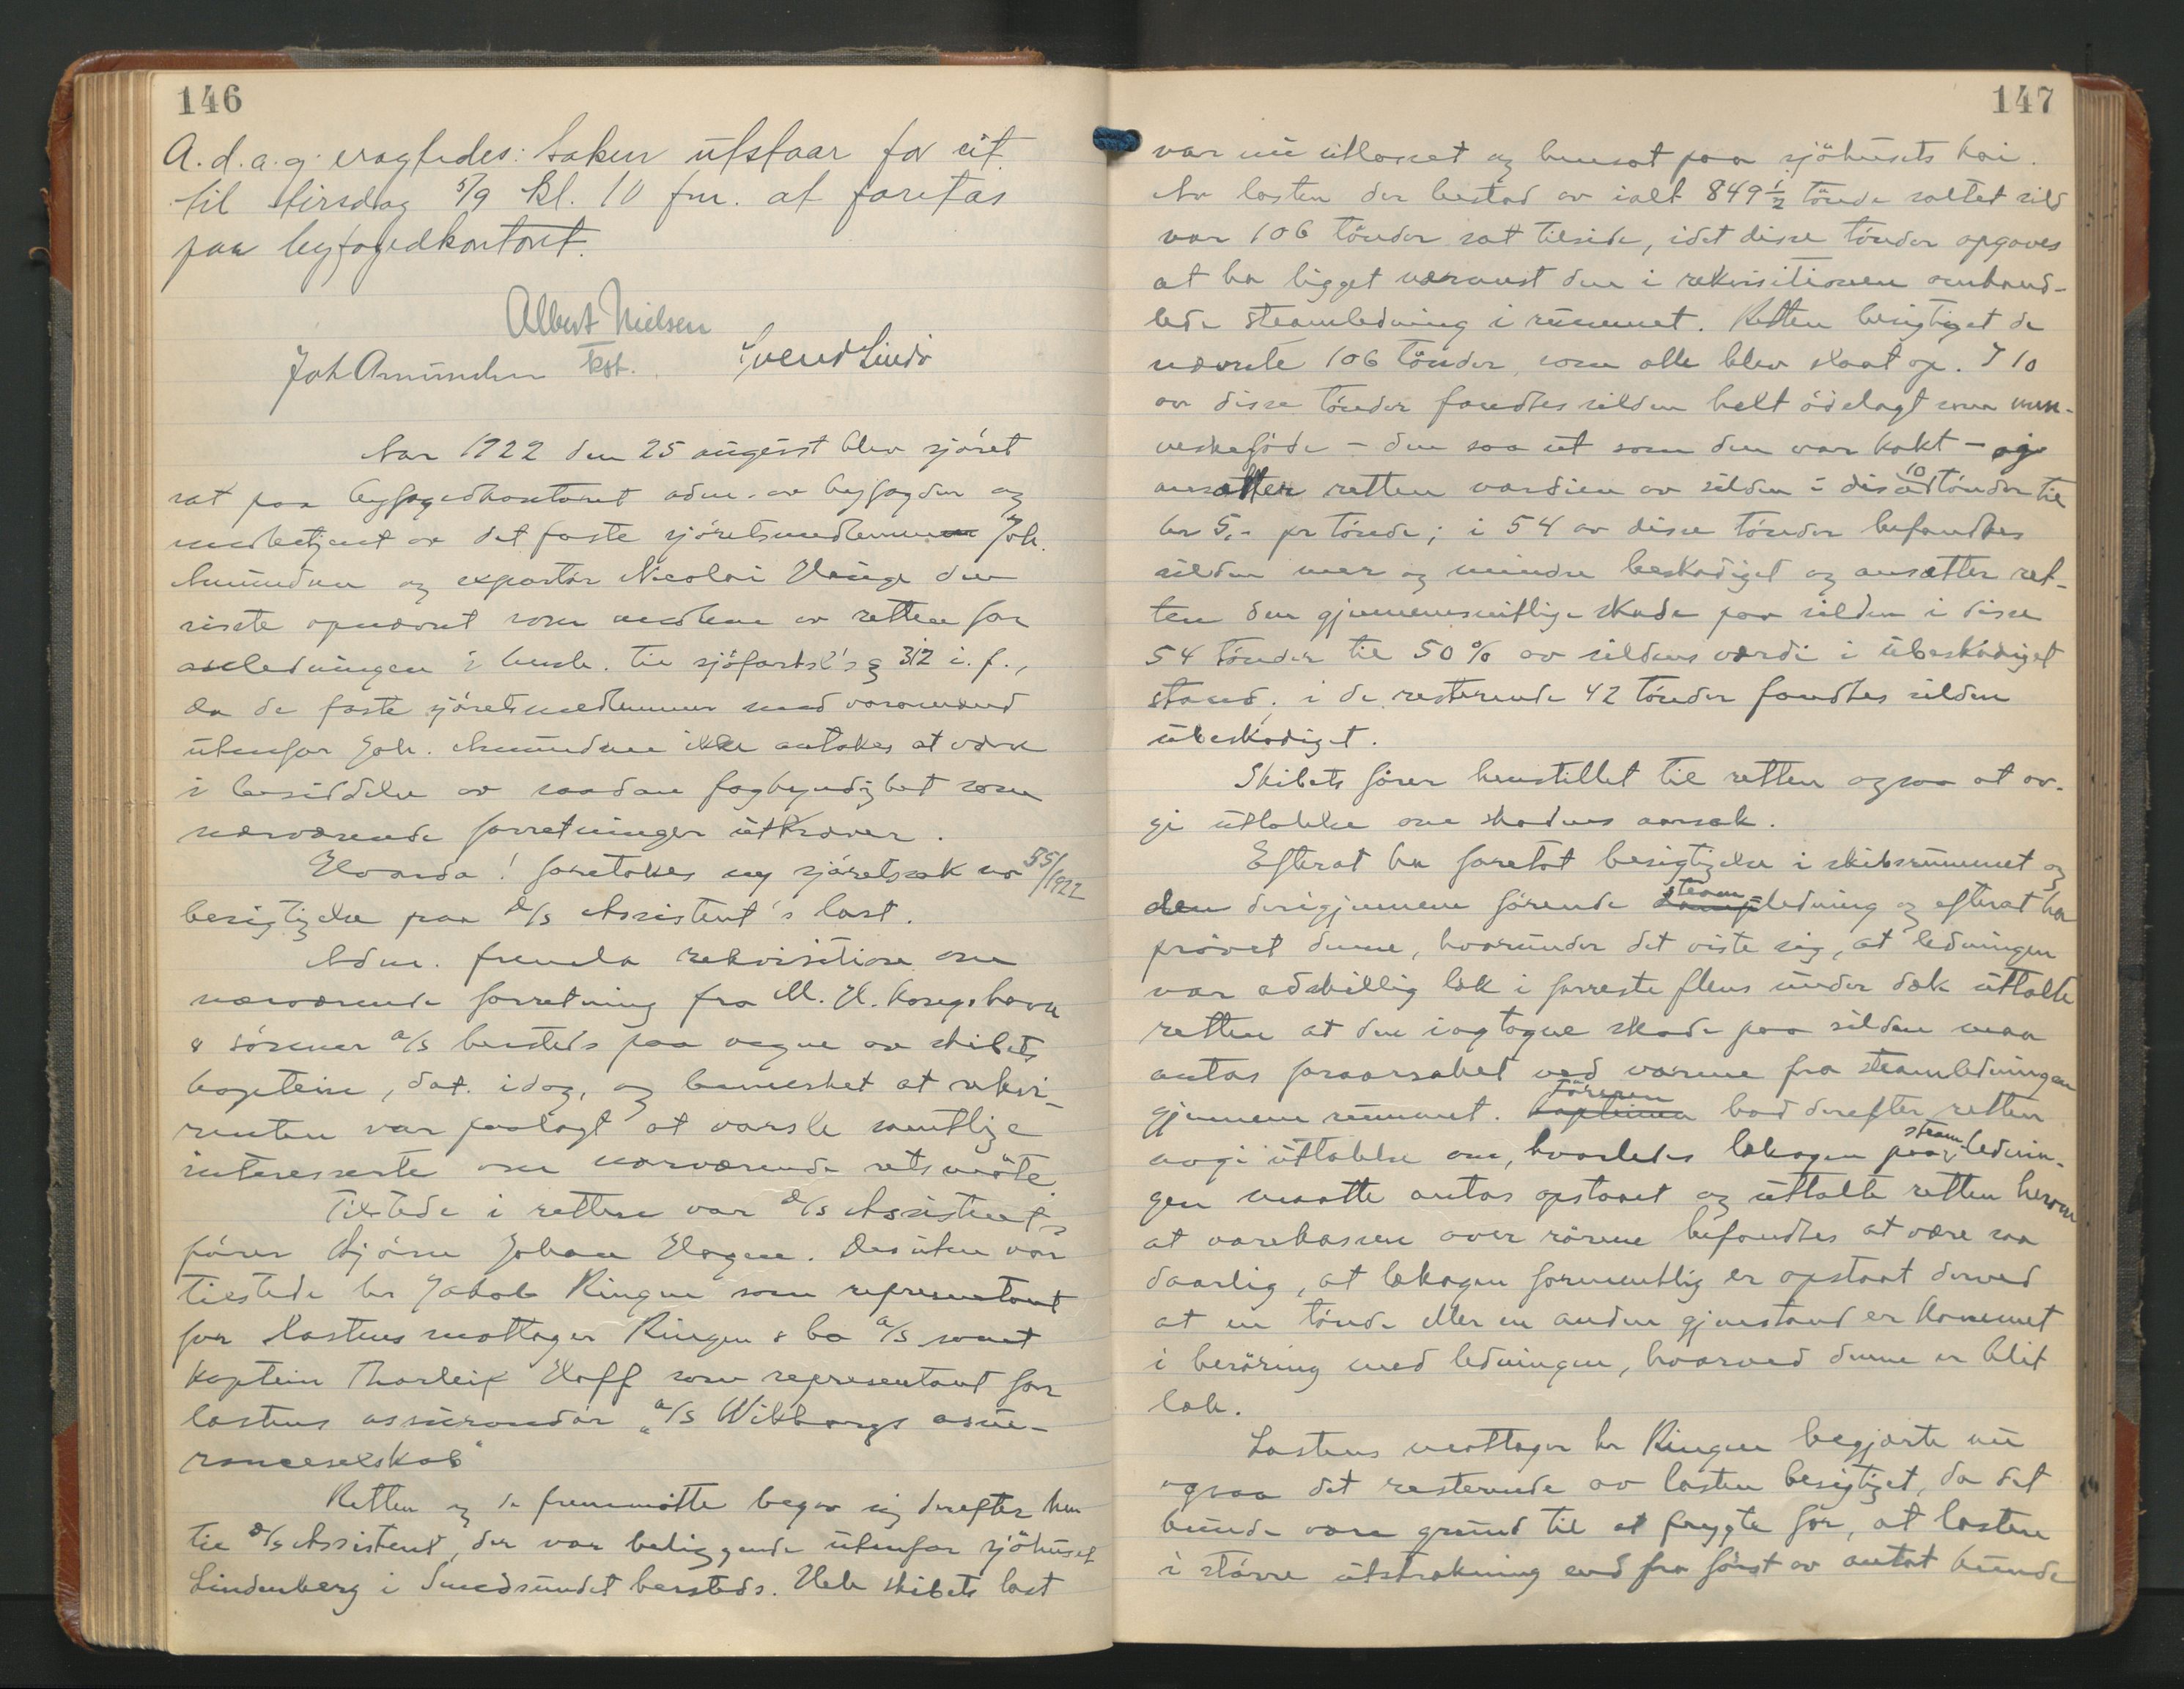 146
A.d.a.g. eragtedes: Saken utstaar for sit
til tirsdag 5/9 kl. 10 fm. at foretas
paa byfogedkontoret.
Albert Nielsen
kst.
Joh Amundsen
Svend Lindö
Aar 1922 den 25 august blev sjöret
sat paa byfogedkontoret adm. av byfogden og
medbetjent av det faste sjöretsmedlem Joh.
Amundsen og exportör Nicolai Hauge den
siste opnævnt som medlem av retten for
anledningen i henh. til sjöfartsl's § 312 i.f.,
da de faste sjöretsmedlemmer med varamænd
utenfor Joh. Amundsen ikke antokes at være
i besiddelse av saadan fagkyndighet som
nærværende forretninger utkræver.
Hvorda! foretokes ny sjöretssak no 55/1922
besigtigelse paa d/s Assistent's last.
Adm. fremla rekvisition om
nærværende forretning fra M. H. Kongshavn
& Sönner a/s hersteds paa vegne av skibets
kaptein, dat. idag, og bemerket at rekvi-
renten var paalagt at varsle samtlige
interesserte om nærværende retsmöte.
Tilstede i retten var d/s Assistent's
förer Björn Johan Hagen. Desuten var
tilstede hr Jakob Ringen som representant
for lastens mottager Ringen & Co a/s samt
kaptein Thorleif Hoff som representant for
lastens assurandör "a/s Wikborgs assu-
ranceselskab"
Retten og de fremmötte begav sig derefter hen
til d/s Assistent, der var beliggende utenfor sjöhuset
Lindenberg i Smedsundet hersteds. Hele skibets last
147
var nu utlosset og hensat paa sjöhusets kai.
Av lasten der bestod av ialt 849 1/2 tönde saltet sild
var 106 tönder sat tilside, idet disse tönder opgaves
at ha ligget nærmest den i rekvisitionen omhand-
lede steamledning i rummet. Retten besigtiget de
nævnte 106 tönder, som alle blev slaat op. I 10
av disse tönder fandtes silden helt ödelagt som men-
neskeföde - den saa ut som den var kokt - og
ansætter retten værdien av silden i disse 10 tönder til
kr 5,- pr tönde; i 54 av disse tönder befandtes
silden mer og mindre beskadiget og ansætter ret-
ten den gjennemsnitlige skade paa silden i disse
54 tönder til 50% av sildens værdi i ubeskadiget
stand; i de resterende 42 tönder fandtes silden
ubeskadiget.
Skibets förer henstillet til retten ogsaa at av-
gi uttalelse om skadens aarsak.
Efterat ha foretat besigtigelse i skibsrummet og
den derigjennem förende steamledning og efterat ha
prövet denne, hvorunder det viste sig, at ledningen
var adskillig læk i forreste flens under dæk uttalte
retten at den iagtagne skade paa silden maa
antas foraarsaket ved varme fra steamledningen
gjennem rummet. Kapteinen Föreren bad derefter retten
avgi uttalelse om, hvorledes lækagen paa steamlednin-
gen maatte antas opstaaet og uttalte retten herom
at varekassen over rörene befandtes at være saa
daarlig, at lækagen formentlig er opstaat derved
at en tönde eller en anden gjenstand er kommet
i beröring med ledningen, hvorved denne er blit
læk.
Lastens mottager hr Ringen begjærte nu
ogsaa det resterende av lasten besigtiget, da det
kunde være grund til at frygte for, at lasten
i större utstrækning end fra först av antat kunde